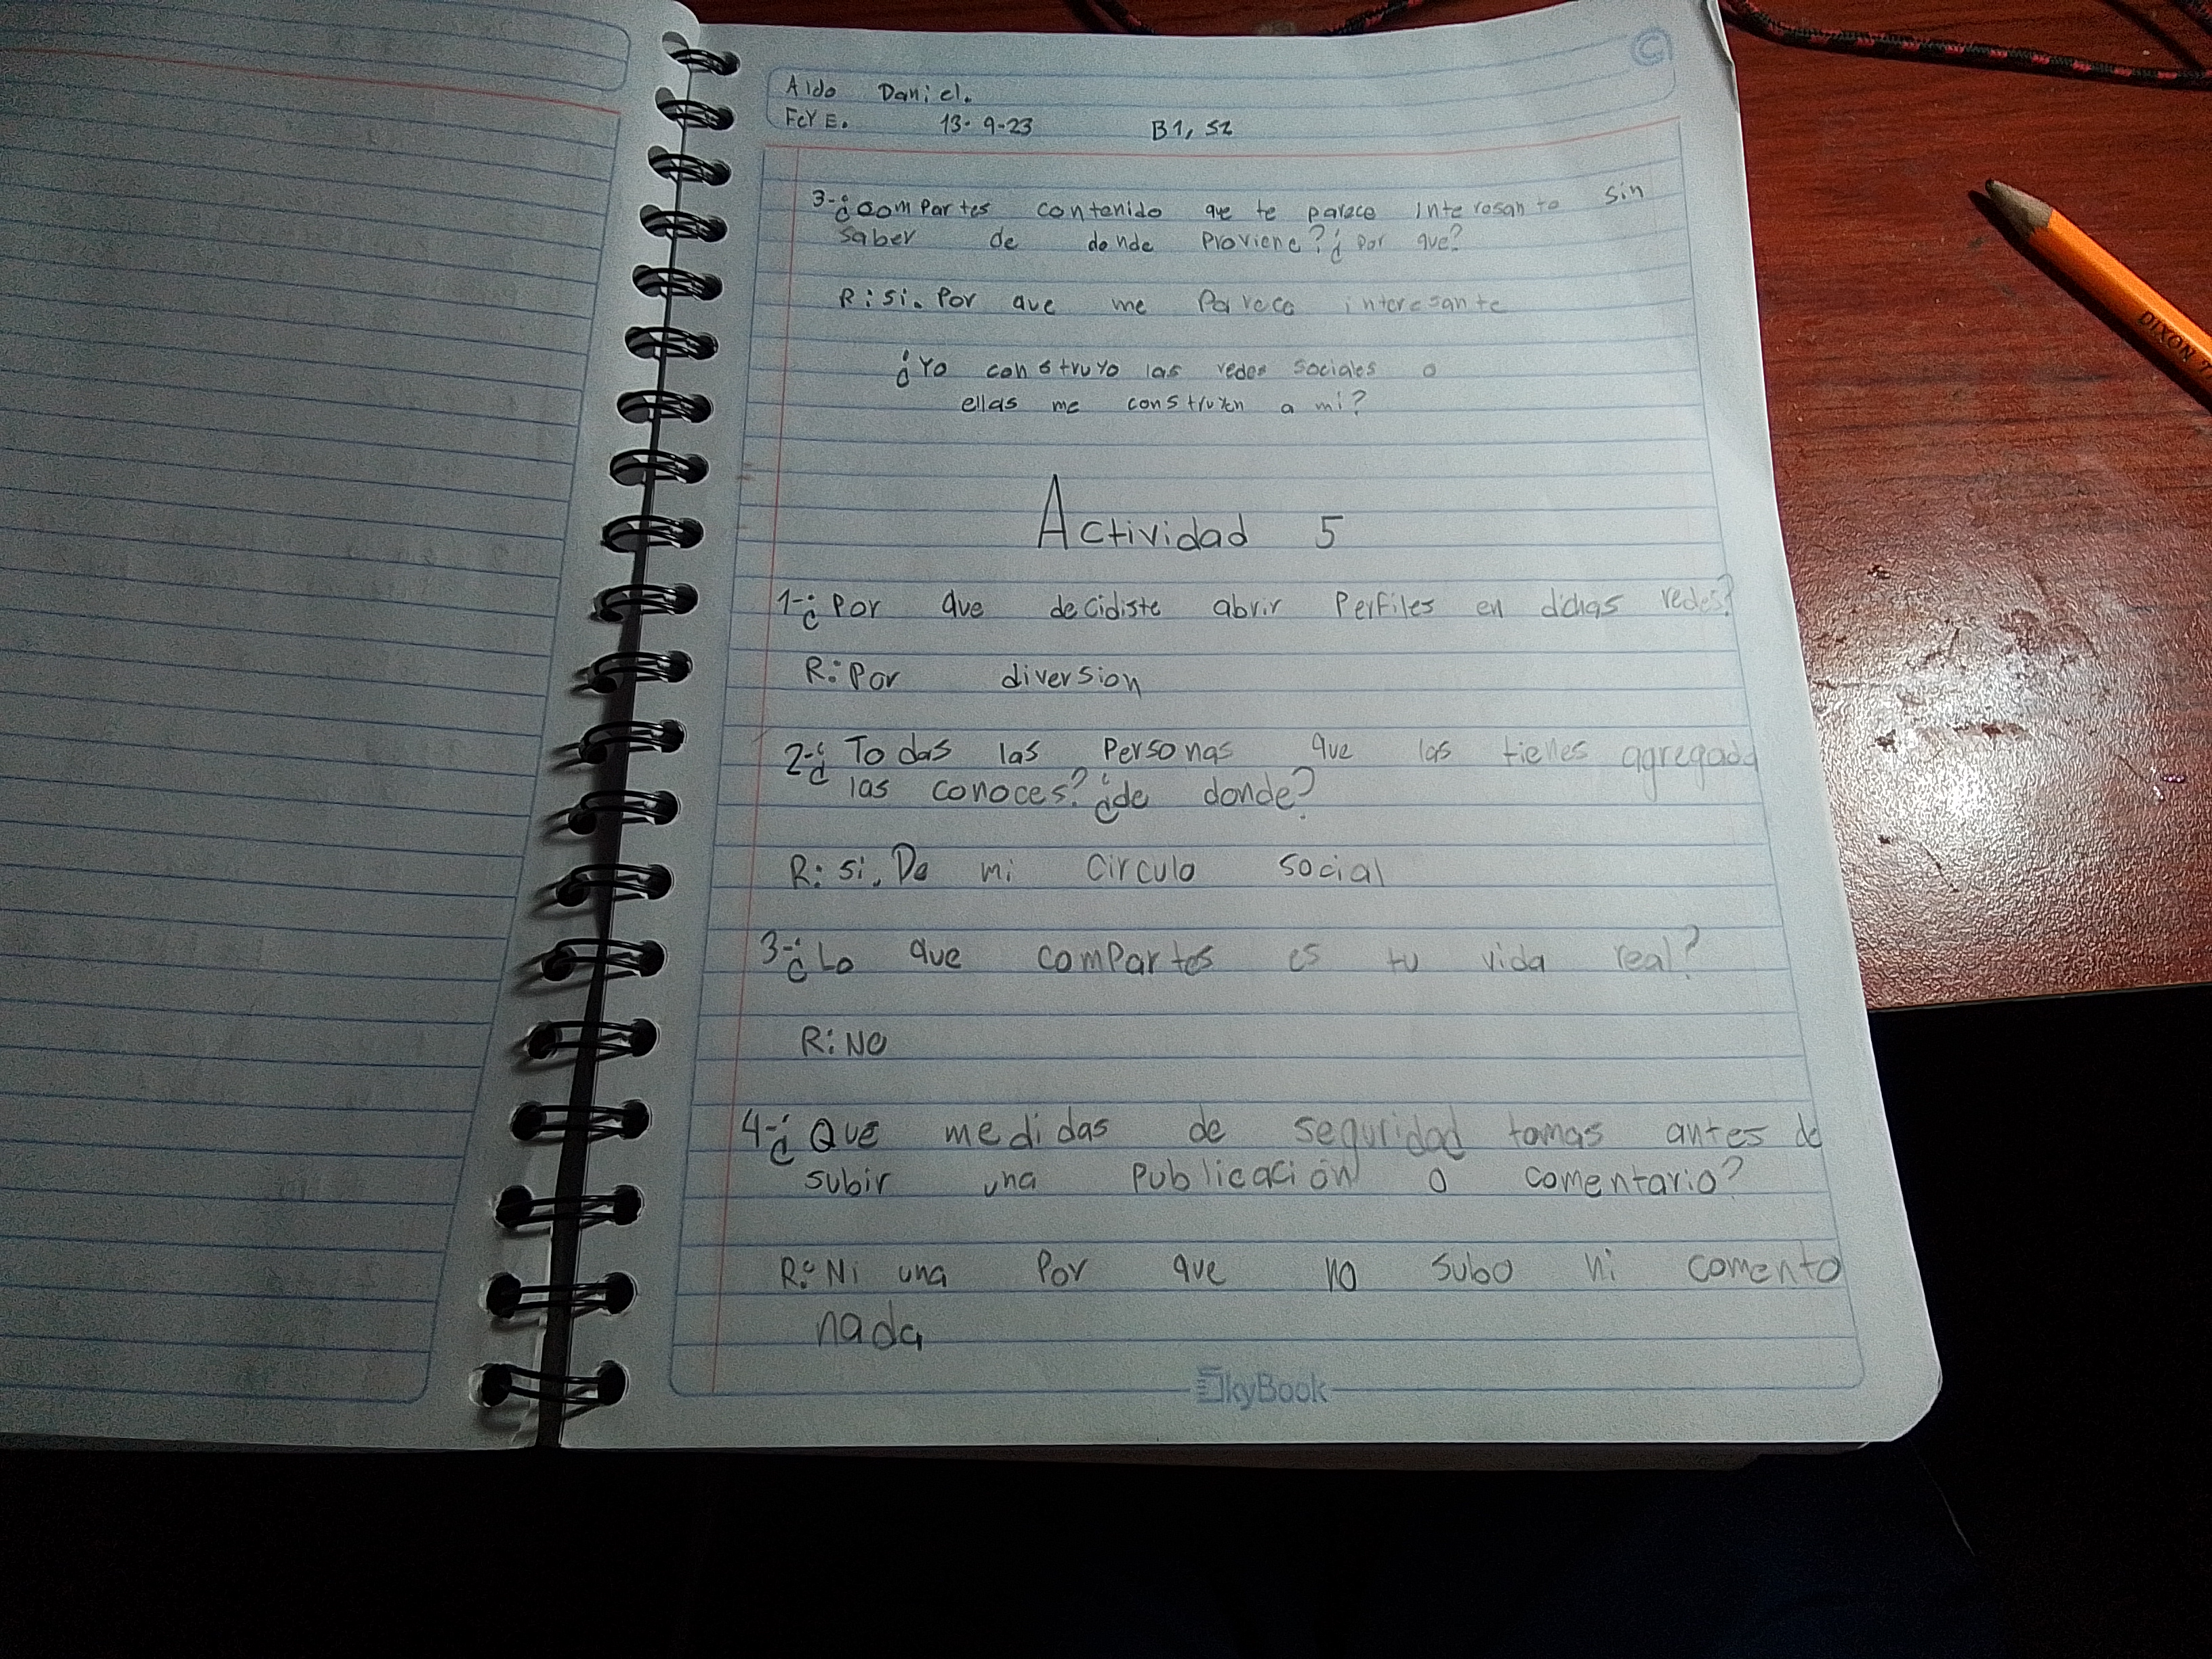 Aldo Daniel.
FCYE. 13-9-23 B1, S2
3-¿compartes contenido que te parece interesante sin
saber de donde proviene?¿por que?
R: si. Por que me Parece interesante
¿Yo construyo las redes sociales o
ellas me construyen a mi?
Actividad 5
1-¿Por que decidiste abrir Perfiles en dichas redes?
R: Por diversion
2-¿Todas las Personas que las tienes agregada
las conoces?¿de donde?
R: si. De mi circulo social
3-¿Lo que compartes es tu vida real?
R: NO
4-¿Que medidas de seguridad tomas antes de
subir una Publicación o comentario?
R: Ni una Por que no subo ni comento
nada
SkyBook
DIXON T